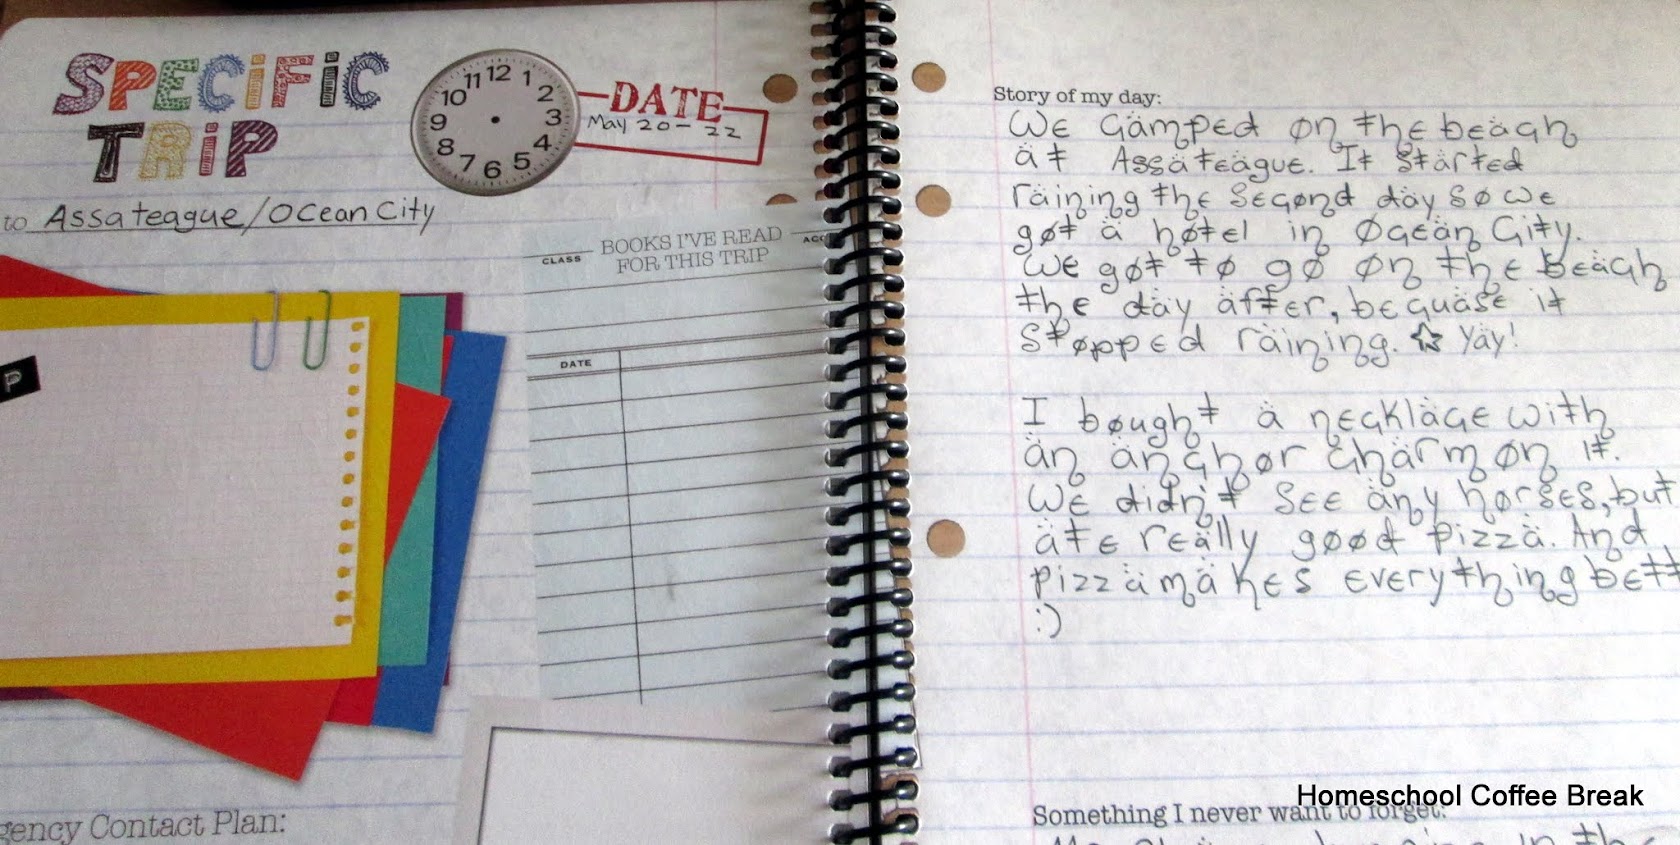 SPECIFIC
TRIP
12 1 2 3 4 5 6 7 8 9 10 11
DATE
May 20-22
to Assateague/Ocean City
P
CLASS
BOOKS I'VE READ
FOR THIS TRIP
ACC
DATE
gency Contact Plan:
Story of my day:
We camped on the beach
at Assateague. It started
raining the second day so we
got a hotel in Ocean City.
We got to go on the beach
the day after, because it
stopped raining. ☆ Yay!
I bought a necklace with
an anchor charm on it.
We didn't see any horses, but
ate really good pizza. And
pizza makes everything bett
:)
Something I never want to forget:
in the
Homeschool Coffee Break